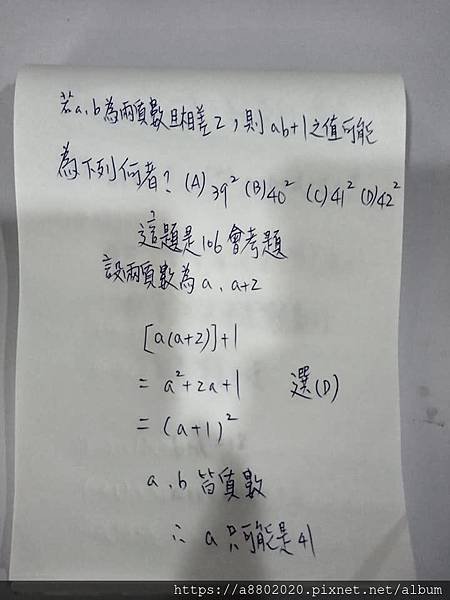 若a、b為兩質數且相差2，則ab+1之值可能
為下列何者？(A) 39² (B) 40² (C) 41² (D) 42²
這題是106會考題
設兩質數為a、a+2
[a(a+2)]+1
= a²+2a+1 選(D)
= (a+1)²
a、b皆質數
∴ a只可能是41
https://a8802020.pixnet.net/album